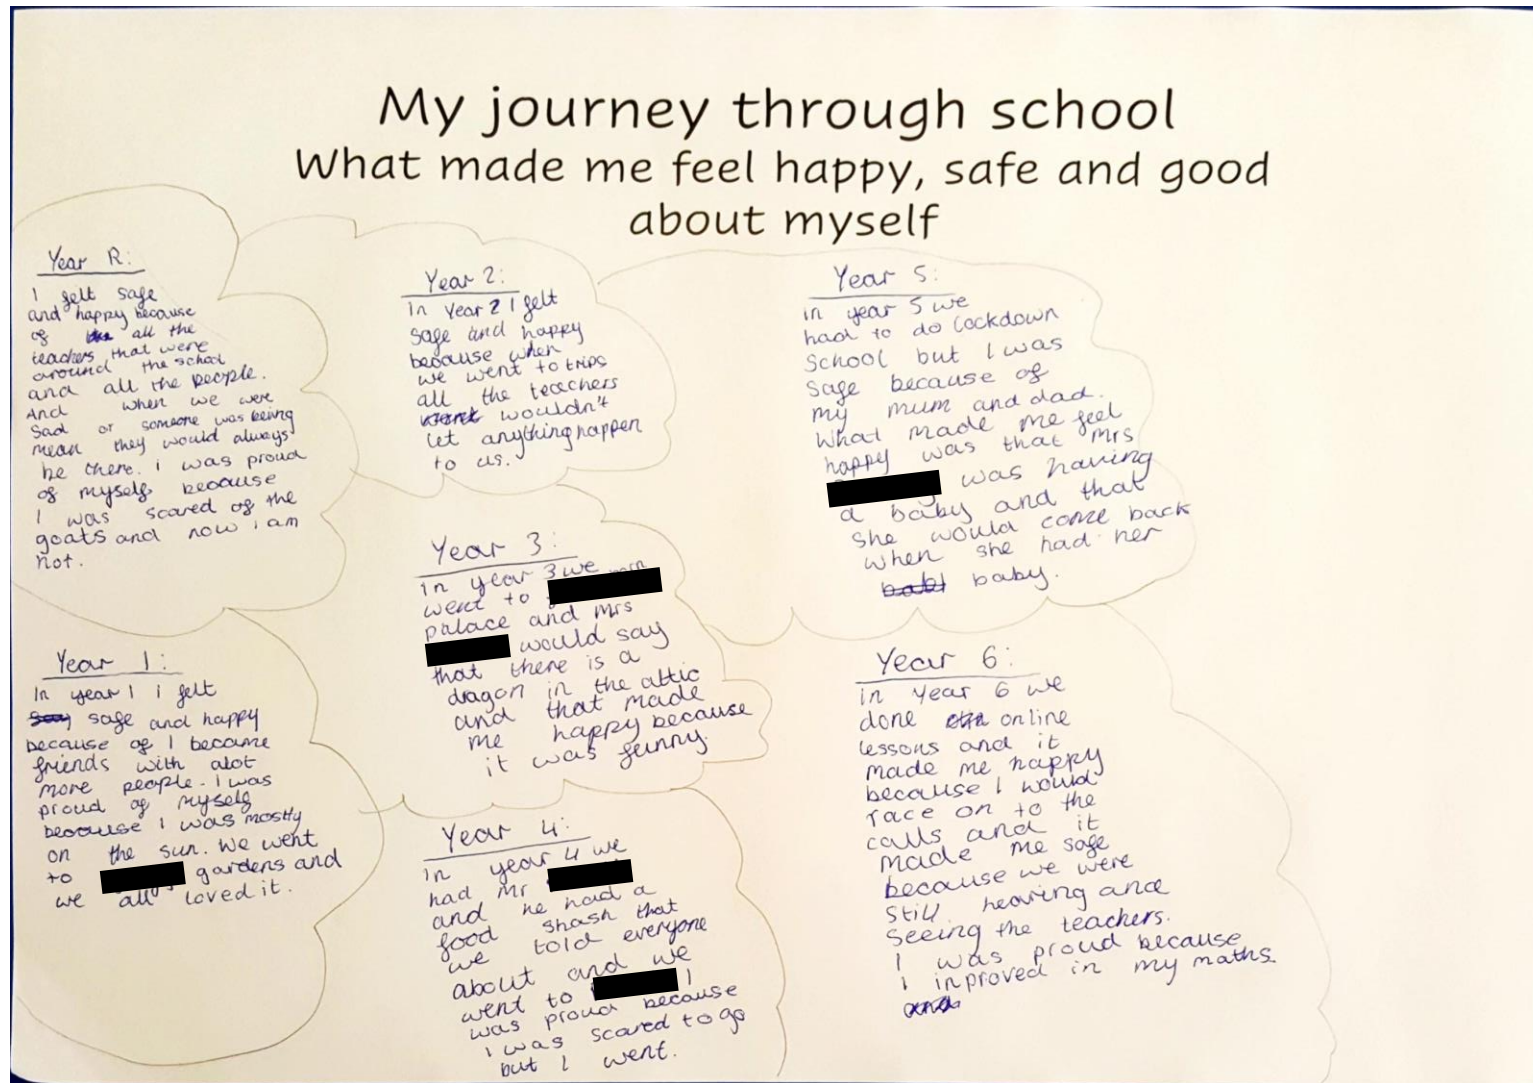 My journey through school
What made me feel happy, safe and good
about myself
Year R:
I felt safe
and happy because
of all the
teachers that were
around the school
and all the people.
And when we were
Sad or someone was being
mean they would always
be there. i was proud
of myself because
I was scared of the
goats and now i am
not.
Year 1:
In year 1 i felt
safe and happy
because of I became
friends with alot
more people. I was
proud of myself
because I was mostly
on the sun. We went
to gardens and
we all loved it.
Year 2:
in Year 2 I felt
safe and happy
because when
we went to trips
all the teachers
wouldn't
let anything happen
to us.
Year 3:
in year 3 we
went to
palace and Mrs
would say
that there is a
dragon in the attic
and that made
me happy because
it was funny.
Year 4:
in year 4 we
had Mr
and he had a
food shash that
we told everyone
about and we
went to I
was proud because
i was scared to go
but I went.
Year 5:
in year 5 we
had to do lockdown
School but I was
safe because of
my mum and dad.
What made me feel
happy was that Mrs
was having
a baby and that
she would come back
when she had her
baby.
Year 6:
in Year 6 we
done online
lessons and it
made me happy
because I would
race on to the
calls and it
made me safe
because we were
still hearing and
seeing the teachers.
I was proud because
I inproved in my maths